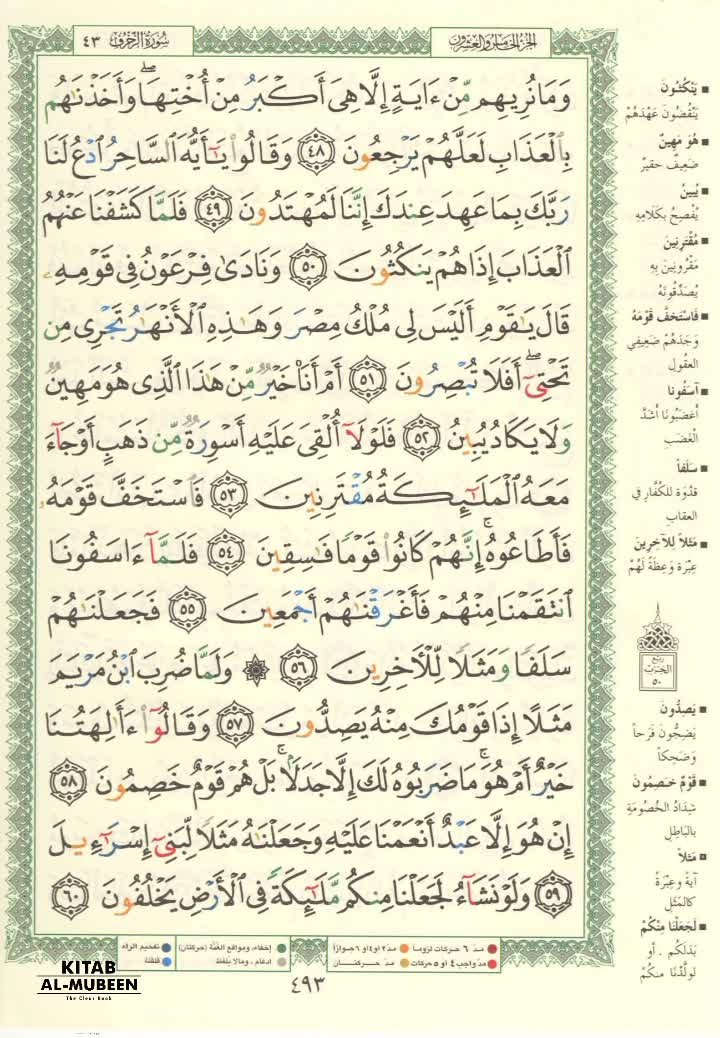 سُورَةُ الزُّخْرُفِ ٤٣
الجزء الخامس والعشرون
وَمَا نُرِيهِم مِّنْ ءَايَةٍ إِلَّا هِىَ أَكْبَرُ مِنْ أُخْتِهَا ۖ وَأَخَذْنَٰهُم
بِٱلْعَذَابِ لَعَلَّهُمْ يَرْجِعُونَ ٤٨ وَقَالُوا۟ يَٰٓأَيُّهَ ٱلسَّاحِرُ ٱدْعُ لَنَا
رَبَّكَ بِمَا عَهِدَ عِندَكَ إِنَّنَا لَمُهْتَدُونَ ٤٩ فَلَمَّا كَشَفْنَا عَنْهُمُ
ٱلْعَذَابَ إِذَا هُمْ يَنكُثُونَ ٥٠ وَنَادَىٰ فِرْعَوْنُ فِى قَوْمِهِۦ
قَالَ يَٰقَوْمِ أَلَيْسَ لِى مُلْكُ مِصْرَ وَهَٰذِهِ ٱلْأَنْهَٰرُ تَجْرِى مِن
تَحْتِىٓ ۖ أَفَلَا تُبْصِرُونَ ٥١ أَمْ أَنَا۠ خَيْرٌ مِّنْ هَٰذَا ٱلَّذِى هُوَ مَهِينٌ
وَلَا يَكَادُ يُبِينُ ٥٢ فَلَوْلَآ أُلْقِىَ عَلَيْهِ أَسْوِرَةٌ مِّن ذَهَبٍ أَوْ جَآءَ
مَعَهُ ٱلْمَلَٰٓئِكَةُ مُقْتَرِنِينَ ٥٣ فَٱسْتَخَفَّ قَوْمَهُۥ
فَأَطَاعُوهُ ۚ إِنَّهُمْ كَانُوا۟ قَوْمًا فَٰسِقِينَ ٥٤ فَلَمَّآ ءَاسَفُونَا
ٱنتَقَمْنَا مِنْهُمْ فَأَغْرَقْنَٰهُمْ أَجْمَعِينَ ٥٥ فَجَعَلْنَٰهُمْ
سَلَفًا وَمَثَلًا لِّلْءَاخِرِينَ ٥٦ ۞ وَلَمَّا ضُرِبَ ٱبْنُ مَرْيَمَ
مَثَلًا إِذَا قَوْمُكَ مِنْهُ يَصِدُّونَ ٥٧ وَقَالُوٓا۟ ءَأَٰلِهَتُنَا
خَيْرٌ أَمْ هُوَ ۚ مَا ضَرَبُوهُ لَكَ إِلَّا جَدَلًۢا ۚ بَلْ هُمْ قَوْمٌ خَصِمُونَ ٥٨
إِنْ هُوَ إِلَّا عَبْدٌ أَنْعَمْنَا عَلَيْهِ وَجَعَلْنَٰهُ مَثَلًا لِّبَنِىٓ إِسْرَٰٓءِيلَ
٥٩ وَلَوْ نَشَآءُ لَجَعَلْنَا مِنكُم مَّلَٰٓئِكَةً فِى ٱلْأَرْضِ يَخْلُفُونَ ٦٠
■ يَنْكُثُونَ
يَنْقُضُونَ عَهْدَهُمْ
■ هُوَ مَهِينٌ
ضَعِيفٌ حقيرٌ
■ يُبِينُ
يُفْصِحُ بِكَلَامِهِ
■ مُقْتَرِنِينَ
مَقْرُونِينَ بِهِ
يُصَدِّقُونَهُ
■ فَاسْتَخَفَّ قَوْمَهُ
وَجَدَهُمْ ضَعِيفِي
العقولِ
■ آسَفُونا
أَغْضَبُونَا أَشَدَّ
الْغَضَبِ
■ سَلَفاً
قدْوَة للكُفَّارِ فِي
العقاب
■ مَثَلاً لِلآخِرِينَ
عِبْرَة وَعِظَةً لَهُمْ
ربع
الحزب
٥٠
■ يَصِدُّونَ
يَضِجُّونَ فَرَحاً
وَضَحِكاً
■ قَوْمٌ خَصِمُونَ
شِدَادُ الخُصُومَةِ
بالبَاطِلِ
■ مَثَلاً
آيَةً وَعِبْرَةً
كالمَثَلِ
■ لَجَعَلْنَا مِنْكُمْ
بَدَلَكُم . أو
لولَّدْنَا منكُمْ
مدّ ٦ حركات لزوماً ● مدّ ٢ او ٤ او ٦ جوازاً
مدّ واجب ٤ او ٥ حركات ● مدّ حركتان
إخفاء، ومواقع الغنّة (حركتان) ● تفخيم الراء
ادغام، ومالا يلفظ ● قلقلة
٤٩٣
KITAB
AL-MUBEEN
The Clear Book